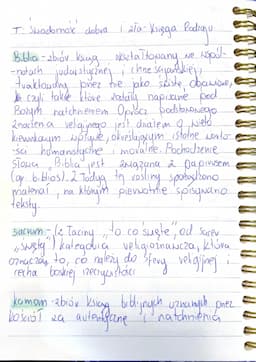 T: Świadomość dobra i zła- Księga Rodzaju
Biblia - zbiór ksiąg, ukształtowany we wspól-
notach judaistycznej i chrześcijańskiej,
traktowany przez nie jako święte, objawione,
czyli takie które zostały napisane pod
Bożym natchnieniem. Oprócz podstawowego
znaczenia religijnego jest dziełem o wielo
kierunkowym wpływie, określającym istotne warto-
ści humanistyczne i moralne. Pochodzenie
słowa „Biblia" jest związana z papirusem
(gr. bíblos). Z łodyg tej rośliny sporządzano
materiał, na którym pierwotnie spisywano
teksty.
sacrum - (z łaciny „to co święte", od sacer
„święty") kategoria religioznawcza, która
oznacza to, co należy do sfery religijnej i
cecha boskiej rzeczywistości
kanon - zbiór ksiąg biblijnych uznanych przez
kościół za autentyczne i natchnienia